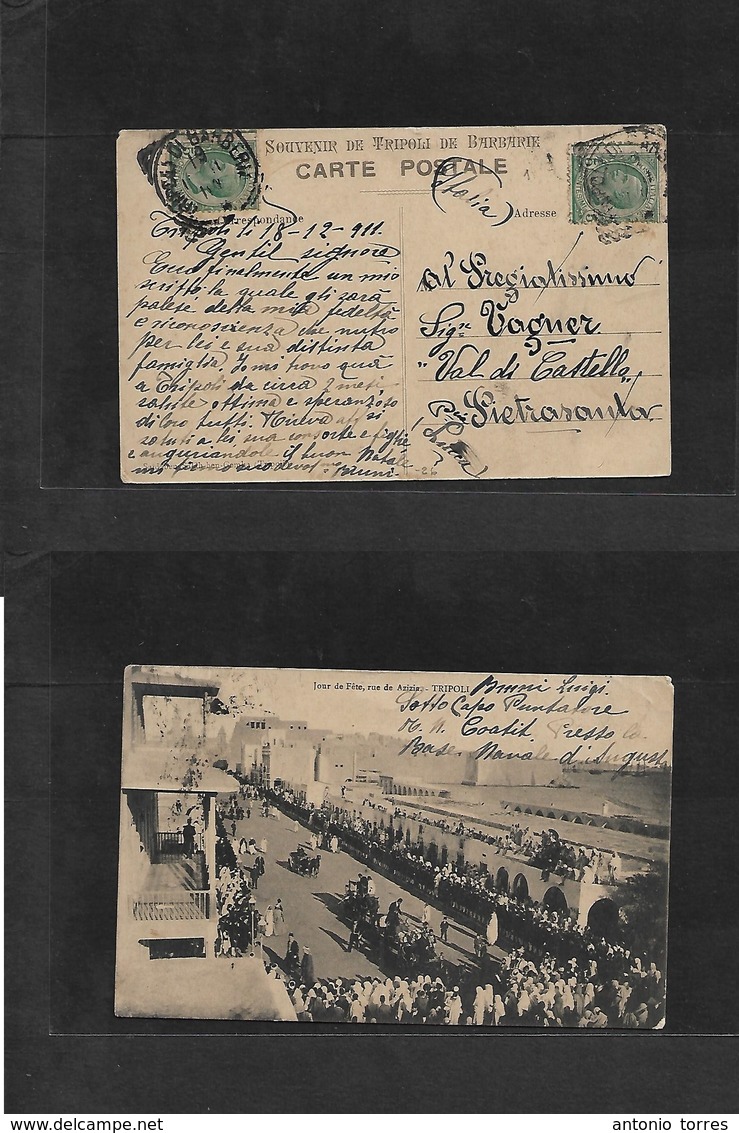 SOUVENIR DE TRIPOLI DE BARBARIE
CARTE POSTALE
(Italia)
Correspondance
Adresse
Tripoli li 18-12-911.
Gentil signore
finalmente un mio
scritto, la quale gli sarà
palese della mia fedeltà
e riconoscienza che nutro
per lei e sua distinta
famiglia. Io mi trovo quà
a Tripoli da circa 2 mesi,
salute ottima e speranzoso
di loro tutti. Riceva
saluti a lei, sua consorte e figlie
e augurandole il buon Natale
mi
Bruni
Al Pregiatissimo
Sigr Vagner
"Val di Castello"
Per Pietrasanta
(Lucca)
Jour de Fête, rue de Azizia. - TRIPOLI
Bruni Luigi
Sotto Capo Puntatore
R. N. Coatit Presso la
Base Navale d'Augusta
antonio torres